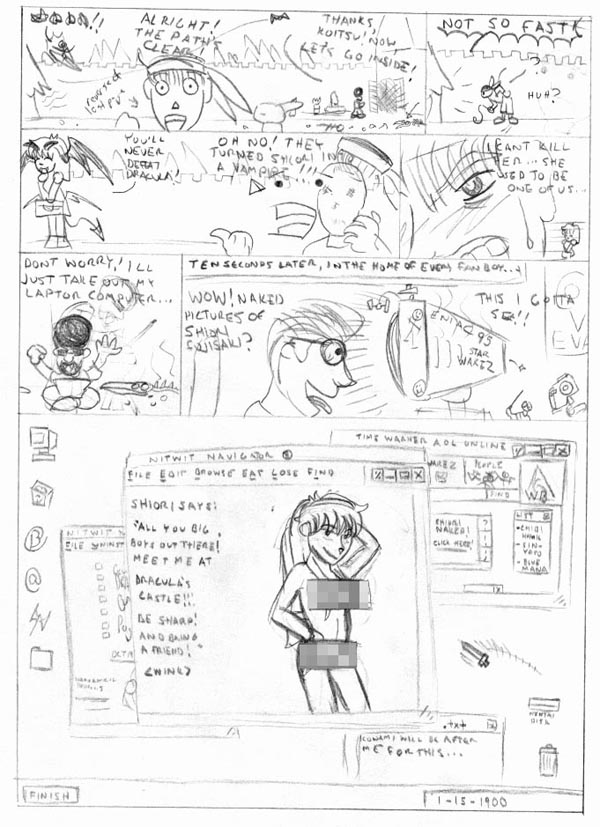 ALRIGHT!
THE PATH'S
CLEAR!
THANKS,
KOITSU! NOW,
LET'S GO INSIDE!
NOT SO FAST!
HUH?
YOU'LL
NEVER
DEFEAT
DRACULA!
OH NO! THEY
TURNED SHIORI INTO
A VAMPIRE...!!!
I CANT KILL
HER... SHE
USED TO BE
ONE OF US...
DONT WORRY! I'LL
JUST TAKE OUT MY
LAPTOP COMPUTER...
TEN SECONDS LATER, IN THE HOME OF EVERY FANBOY...
WOW! NAKED
PICTURES OF
SHIORI
FUJISAKI?
ENIAC 95
STAR
WAREZ
THIS I GOTTA
SEE!!
TIME WARNER AOL ONLINE
WAREZ
PEOPLE
FIND
WB
SHIORI
NAKED!
CLICK HERE!
LIST
NITWIT NAVIGATOR
FILE EDIT BROWSE EAT LOSE FIND
SHIORI SAYS:
"ALL YOU BIG
BOYS OUT THERE!
MEET ME AT
DRACULA'S
CASTLE!!!
BE SHARP!
AND BRING
A FRIEND!"
<WINK>
NITWIT
FILE
.txt
KONAMI WILL BE AFTER
ME FOR THIS...
HENTAI
DISK
FINISH
1-15-1900